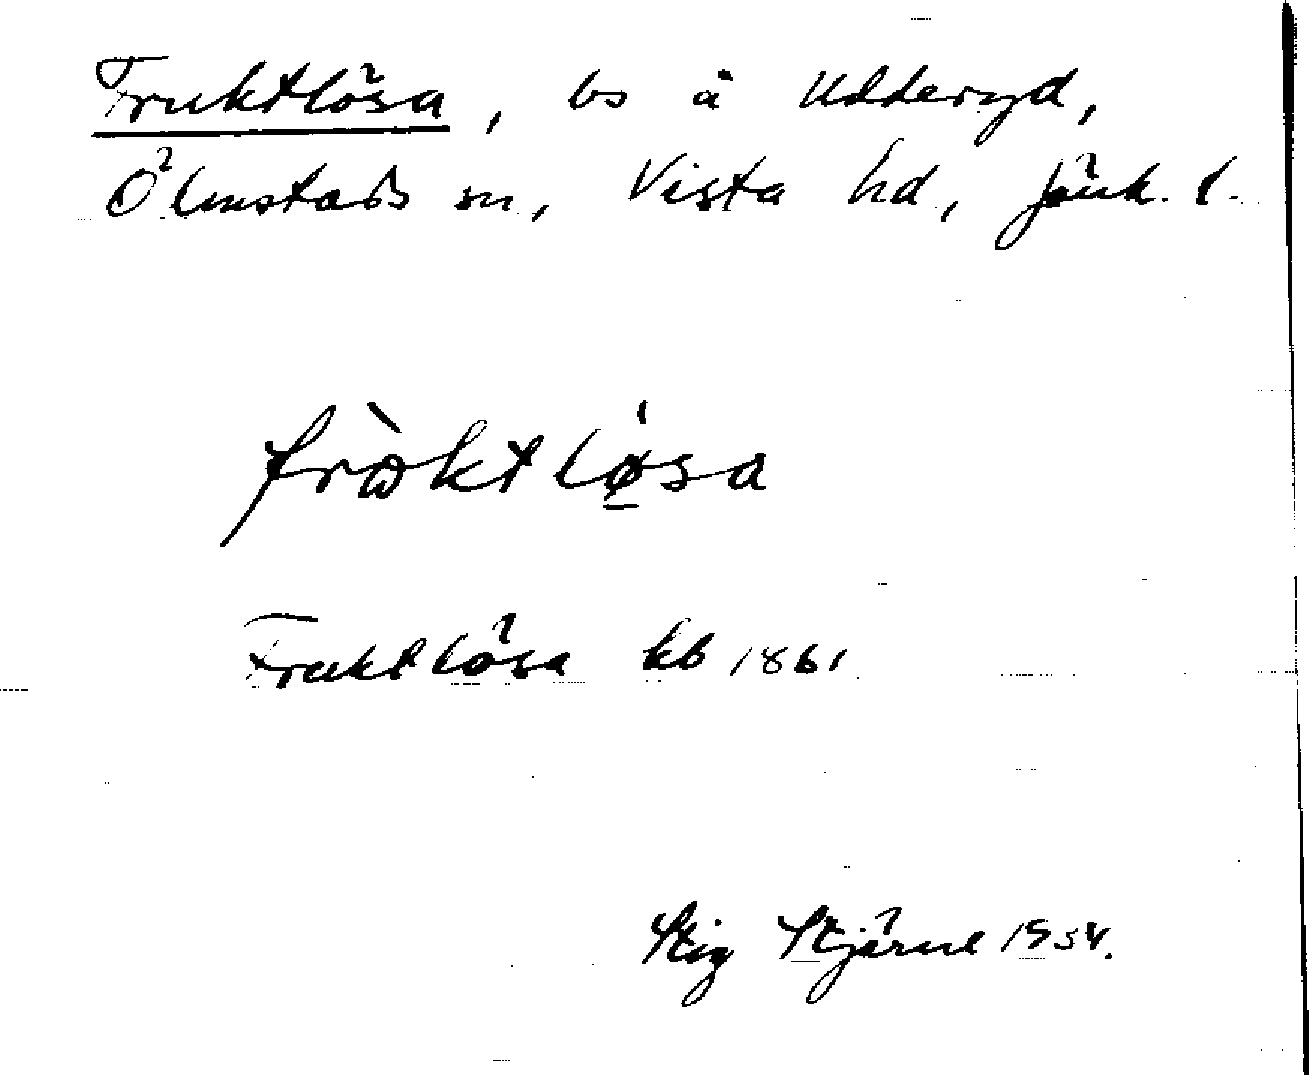 Fruktlösa, bs å Udderyd,
Ölmstads sn, Vista hd, Jönk. l.
frὼktløsa
Fruktlösa kb 1861
Stig Stjärne 1954.